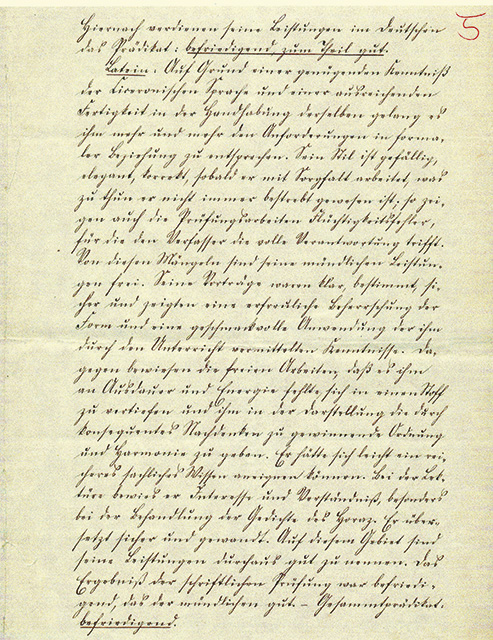 5
Hiernach verdienen seine Leistungen im Deutschen
das Prädikat: befriedigend zum Theil gut.
Latein: Auf Grund einer genügenden Kenntniß
der Ciceronischen Sprache und einer ausreichenden
Fertigkeit in der Handhabung derselben gelang es
ihm mehr und mehr den Anforderungen in forma-
ler Beziehung zu entsprechen. Sein Stil ist gefällig,
elegant, korrekt, sobald er mit Sorgfalt arbeitet, was
zu thun er nicht immer bestrebt gewesen ist; so zei-
gen auch die Prüfungsarbeiten Flüchtigkeitsfehler,
für die den Verfasser die volle Verantwortung trifft.
Von diesen Mängeln sind seine mündlichen Leistun-
gen frei. Seine Vorträge waren klar, bestimmt, si-
cher und zeigten eine erfreuliche Beherrschung der
Form und eine geschmackvolle Anwendung der ihm
durch den Unterricht vermittelten Kenntnisse. Da-
gegen bewiesen die freien Arbeiten, daß es ihm
an Ausdauer und Energie fehlte sich in einen Stoff
zu vertiefen und ihm in der Darstellung die durch
konsequentes Nachdenken zu gewinnende Ordnung
und Harmonie zu geben. Er hätte sich leicht ein rei-
cheres sachliches Wissen aneignen können. Bei der Lek-
türe bewies er Interesse und Verständniß, besonders
bei der Behandlung der Gedichte des Horaz. Er über-
setzt sicher und gewandt. Auf diesem Gebiet sind
seine Leistungen durchaus gut zu nennen. Das
Ergebniß der schriftlichen Prüfung war befriedi-
gend, das der mündlichen gut. – Gesammtprädikat:
befriedigend.